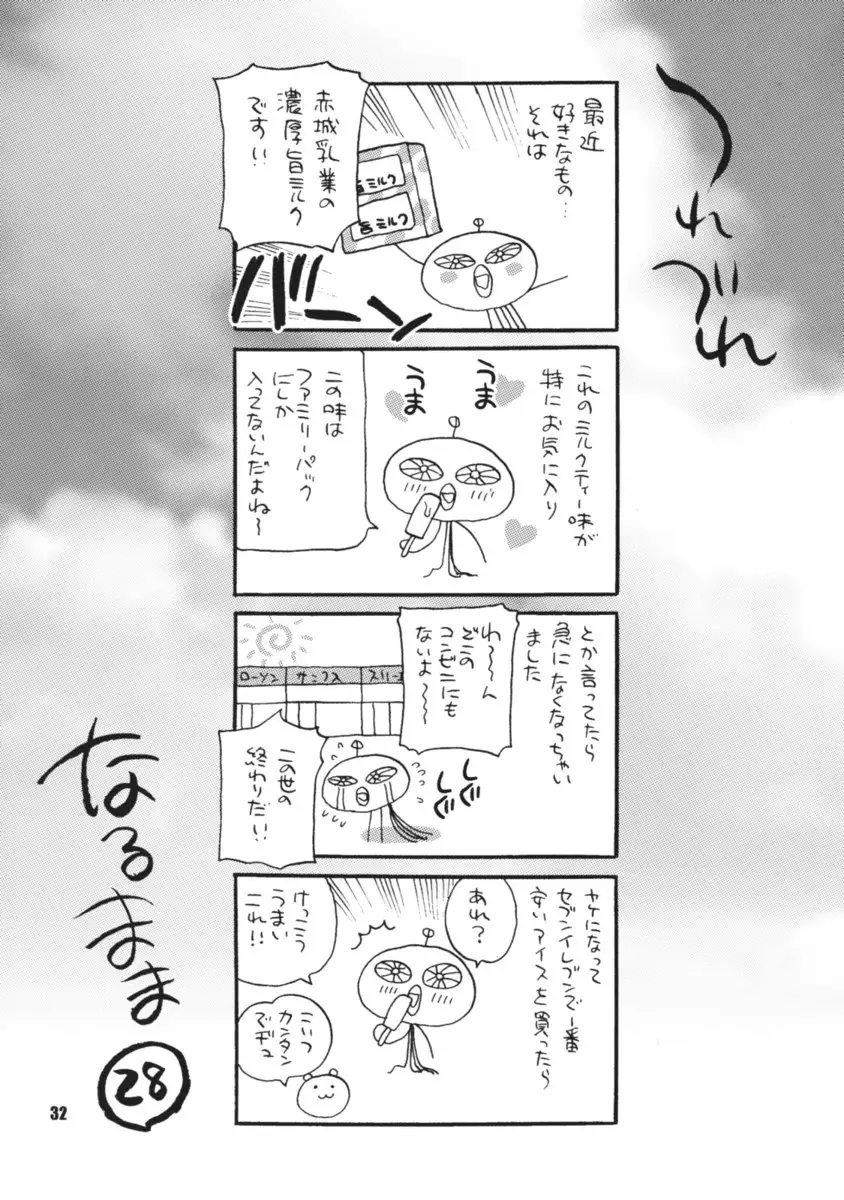 つれづれ
なるまま
28
最近
好きなもの…
それは
赤城乳業の
濃厚旨ミルク
です!!
旨ミルク
旨ミルク
バーン
これのミルクティー味が
特にお気に入り
うま
うま
この味は
ファミリーパック
にしか
入ってないんだよね〜
とか言ってたら
急になくなっちゃい
ました
わ〜〜ん
どこの
コンビニにも
ないよ〜〜
ローソン
サンクス
スリーエ
この世の
終わりだい!!
しぐ
しぐ
ヤケになって
セブンイレブンで一番
安いアイスを買ったら
あれ?
けっこう
うまい
これ!!
こいつ
カンタン
でチュ
32